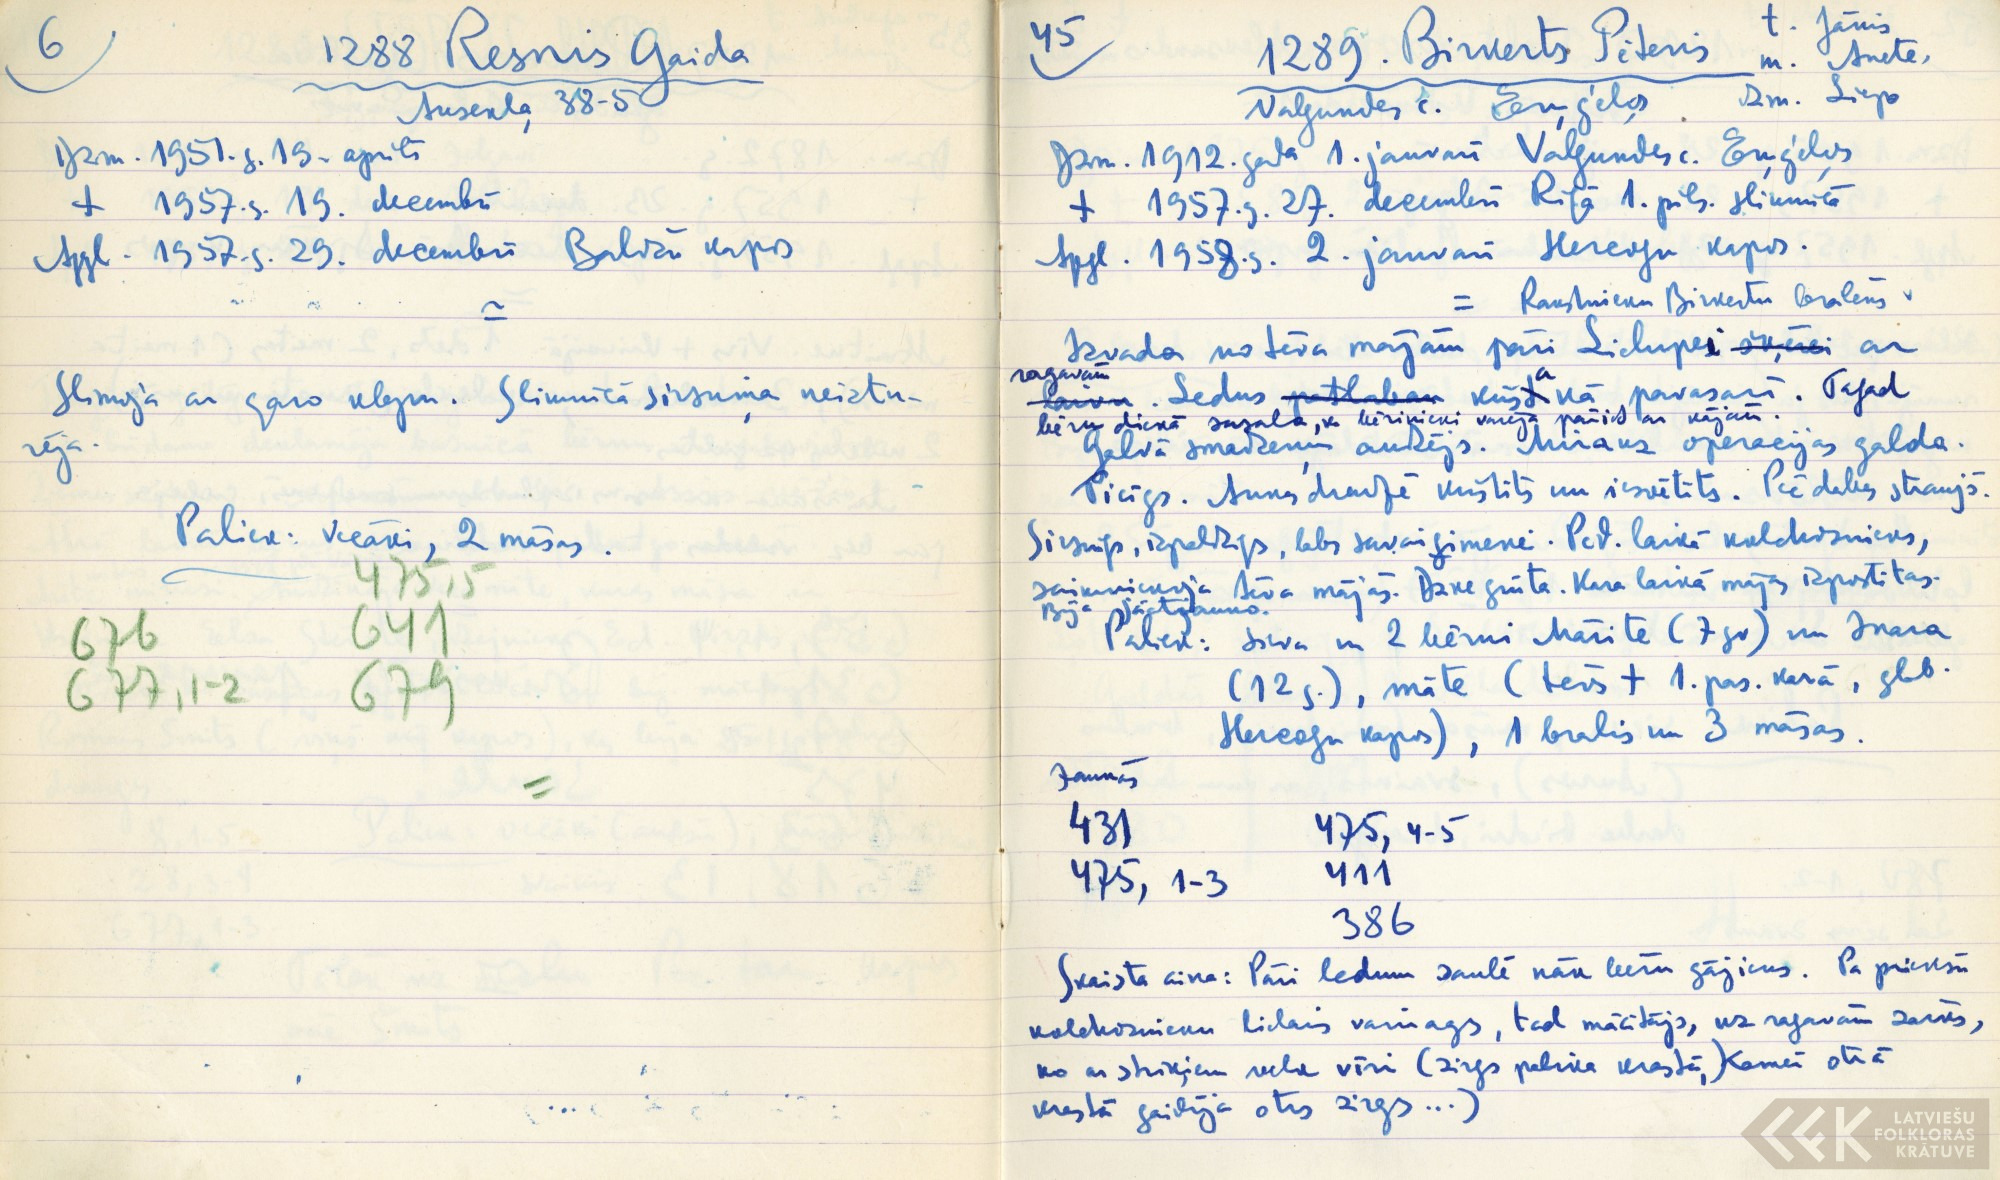 6
1288 Resnis Gaida
Ausekļa 38-5
Dzm. 1951. g. 19. aprīlī
+ 1957. g. 19. decembrī
Apgl. 1957. g. 29. decembrī Baložu kapos
=
Slimoja ar garo klepu. Slimnīcā sirsniņa neiztu-
rēja.
Paliek: vecāki, 2 māsas.
475,5
676 641
677, 1-2 679
=
45
1289. Birkerts Pēteris
t. Jānis
m. Anete,
dzm. Liepa
Valgundes c. Eņģeļos
Dzm. 1912. gada 1. janvarī Valgundes c. Eņģeļos
+ 1957. g. 27. decembrī Rīgā 1. pils. slimnīcā
Apgl. 1958. g. 2. janvarī Hercogu kapos.
= Rakstnieku Birkertu bralēns
Izvada no tēva mājām pāri Lielupei ar
ragavām
. Ledus patlaban kūst kā pavasarī. Tagad
bēru dienā sasala, ka bērinieki varēja pāriet ar kājām.
Galvā smadzeņu audzējs. Miris uz operacijas galda.
Ticīgs. Annas draudzē kristīts un iesvētīts. Pēc dabas straujš.
Sirsnīgs, izpalīdzīgs, labs savai ģimenei. Pēd. laikā kolchoznieks,
saimniekoja tēva mājās. Dzīve grūta. Kara laikā mājas izpostītas.
Bija jāatjauno.
Paliek: sieva un 2 bērni Mārīte (7 gr) un Inara
(12 g.), māte (tēvs + 1. pas. karā, glb.
Hercogu kapos), 1 bralis un 3 māsas.
Jaunās
431 475, 4-5
475, 1-3 411
386
Skaista aina: Pāri ledum saulē nāk bēru gājiens. Pa priekšu
kolchoznieku lielais vainags, tad mācītājs, uz ragavām zārks,
ko ar striķiem velk vīri (zirgs palika krastā, kamēr otrā
krastā gaidīja otrs zirgs...)
LATVIEŠU
FOLKLORAS
KRĀTUVE